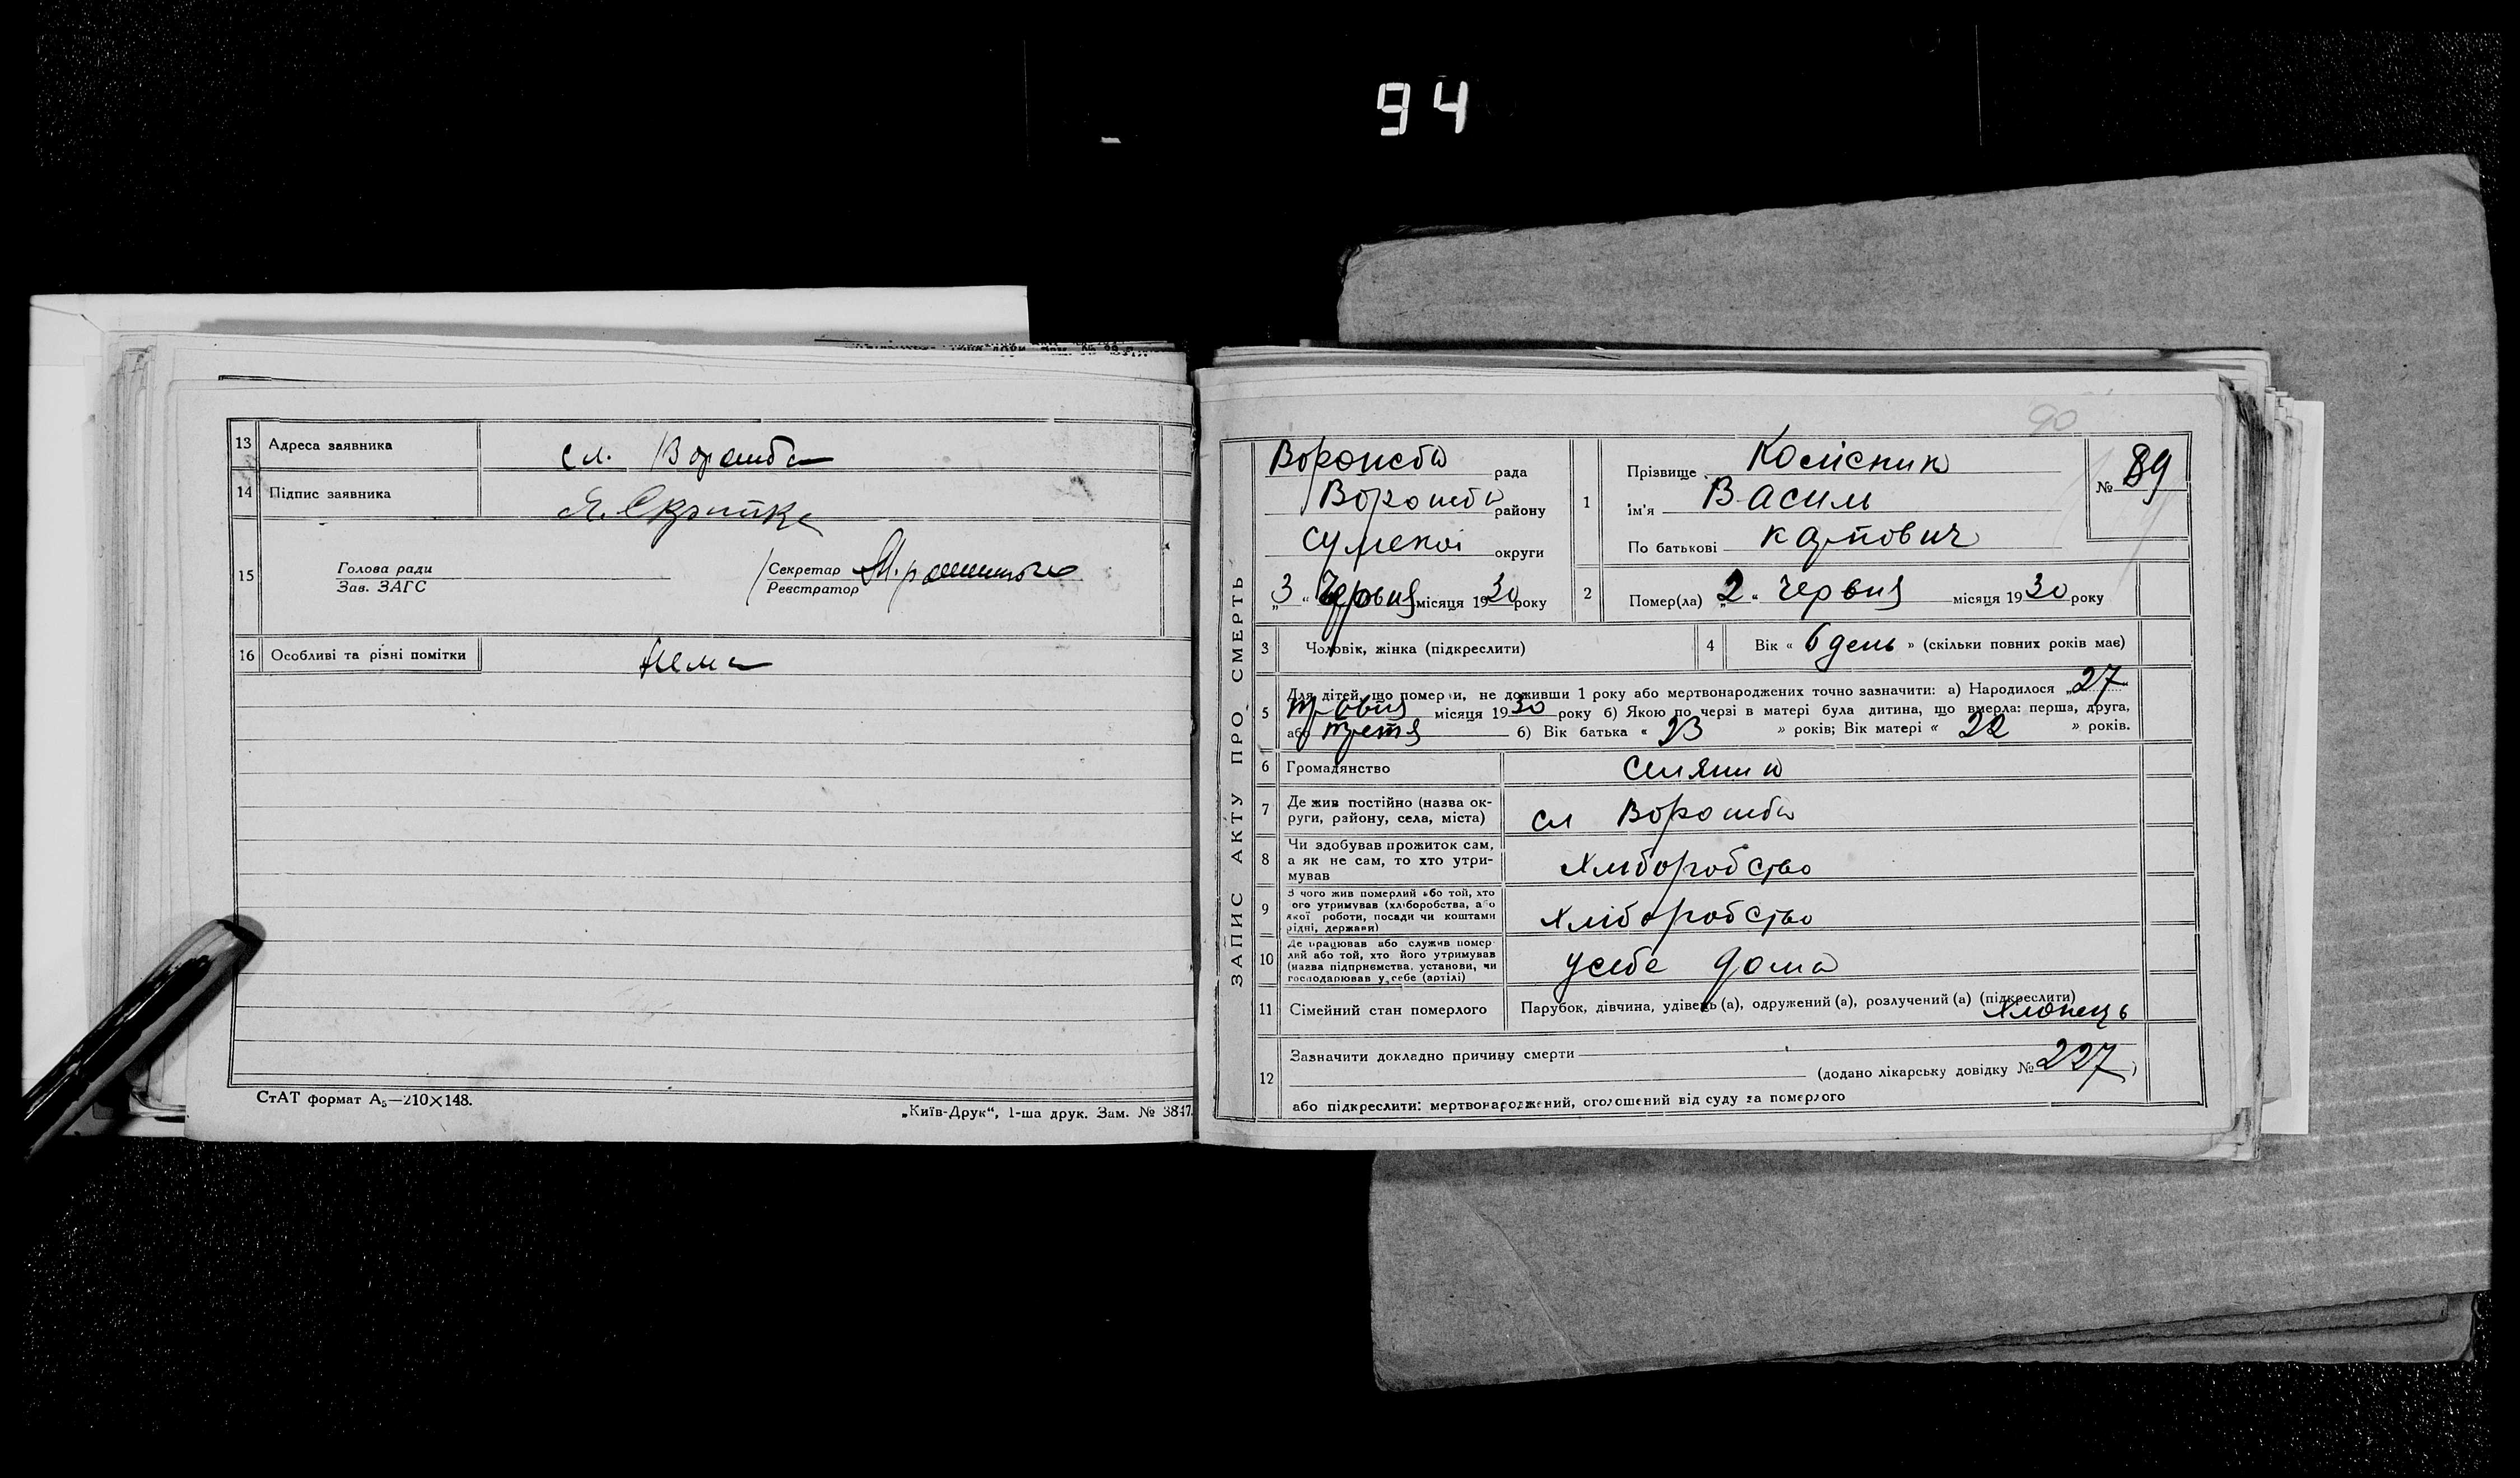 94
13 Адреса заявника сл. Ворожба
14 Підпис заявника Я. Скрипка
15 Голова ради
Зав. ЗАГС
Секретар
Реєстратор
16 Особливі та різні помітки Нема
СтАТ формат А₅—210×148.
„Київ-Друк“, 1-ша друк. Зам. № 3847.
90
ЗАПИС АКТУ ПРО СМЕРТЬ
Ворожба рада
Ворожба району
Сумської округи
„3“ Червня місяця 1930 року
1 Прізвище Колісник
Ім'я Василь
По батькові Карпович
№ 89
2 Помер(ла) „2“ Червня місяця 1930 року
3 Чоловік, жінка (підкреслити)
4 Вік « 6 день » (скільки повних років має)
5 Для дітей, що померли, не доживши 1 року або мертвонароджених точно зазначити: а) Народилося „27“
Травня місяця 1930 року б) Якою по черзі в матері була дитина, що вмерла: перша, друга,
або третя б) Вік батька « 23 » років; Вік матері « 22 » років.
6 Громадянство селянин
7 Де жив постійно (назва ок-
руги, району, села, міста) сл Ворожба
8 Чи здобував прожиток сам,
а як не сам, то хто утри-
мував Хліборобство
9 З чого жив померлий або той, хто
його утримував (хліборобства, або
якої роботи, посади чи коштами
рідні, держави) Хліборобство
10 Де працював або служив помер-
лий або той, хто його утримував
(назва підприємства, установи, чи
господарював у себе (артілі) усебе дома
11 Сімейний стан померлого Парубок, дівчина, удівець (а), одружений (а), розлучений (а) (підкреслити)
Хлопець
12 Зазначити докладно причину смерти
(додано лікарську довідку № 227)
або підкреслити: мертвонароджений, оголошений від суду за померлого